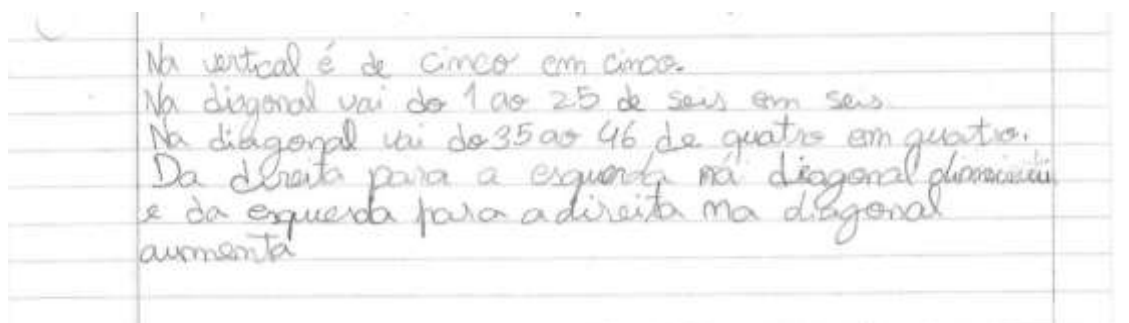 Na vertical é de cinco em cinco.
Na diagonal vai do 1 ao 25 de seis em seis
Na diagonal vai do 35 ao 46 de quatro em quatro.
Da direita para a esquerda na diagonal
e da esquerda para a direita na diagonal
aumenta